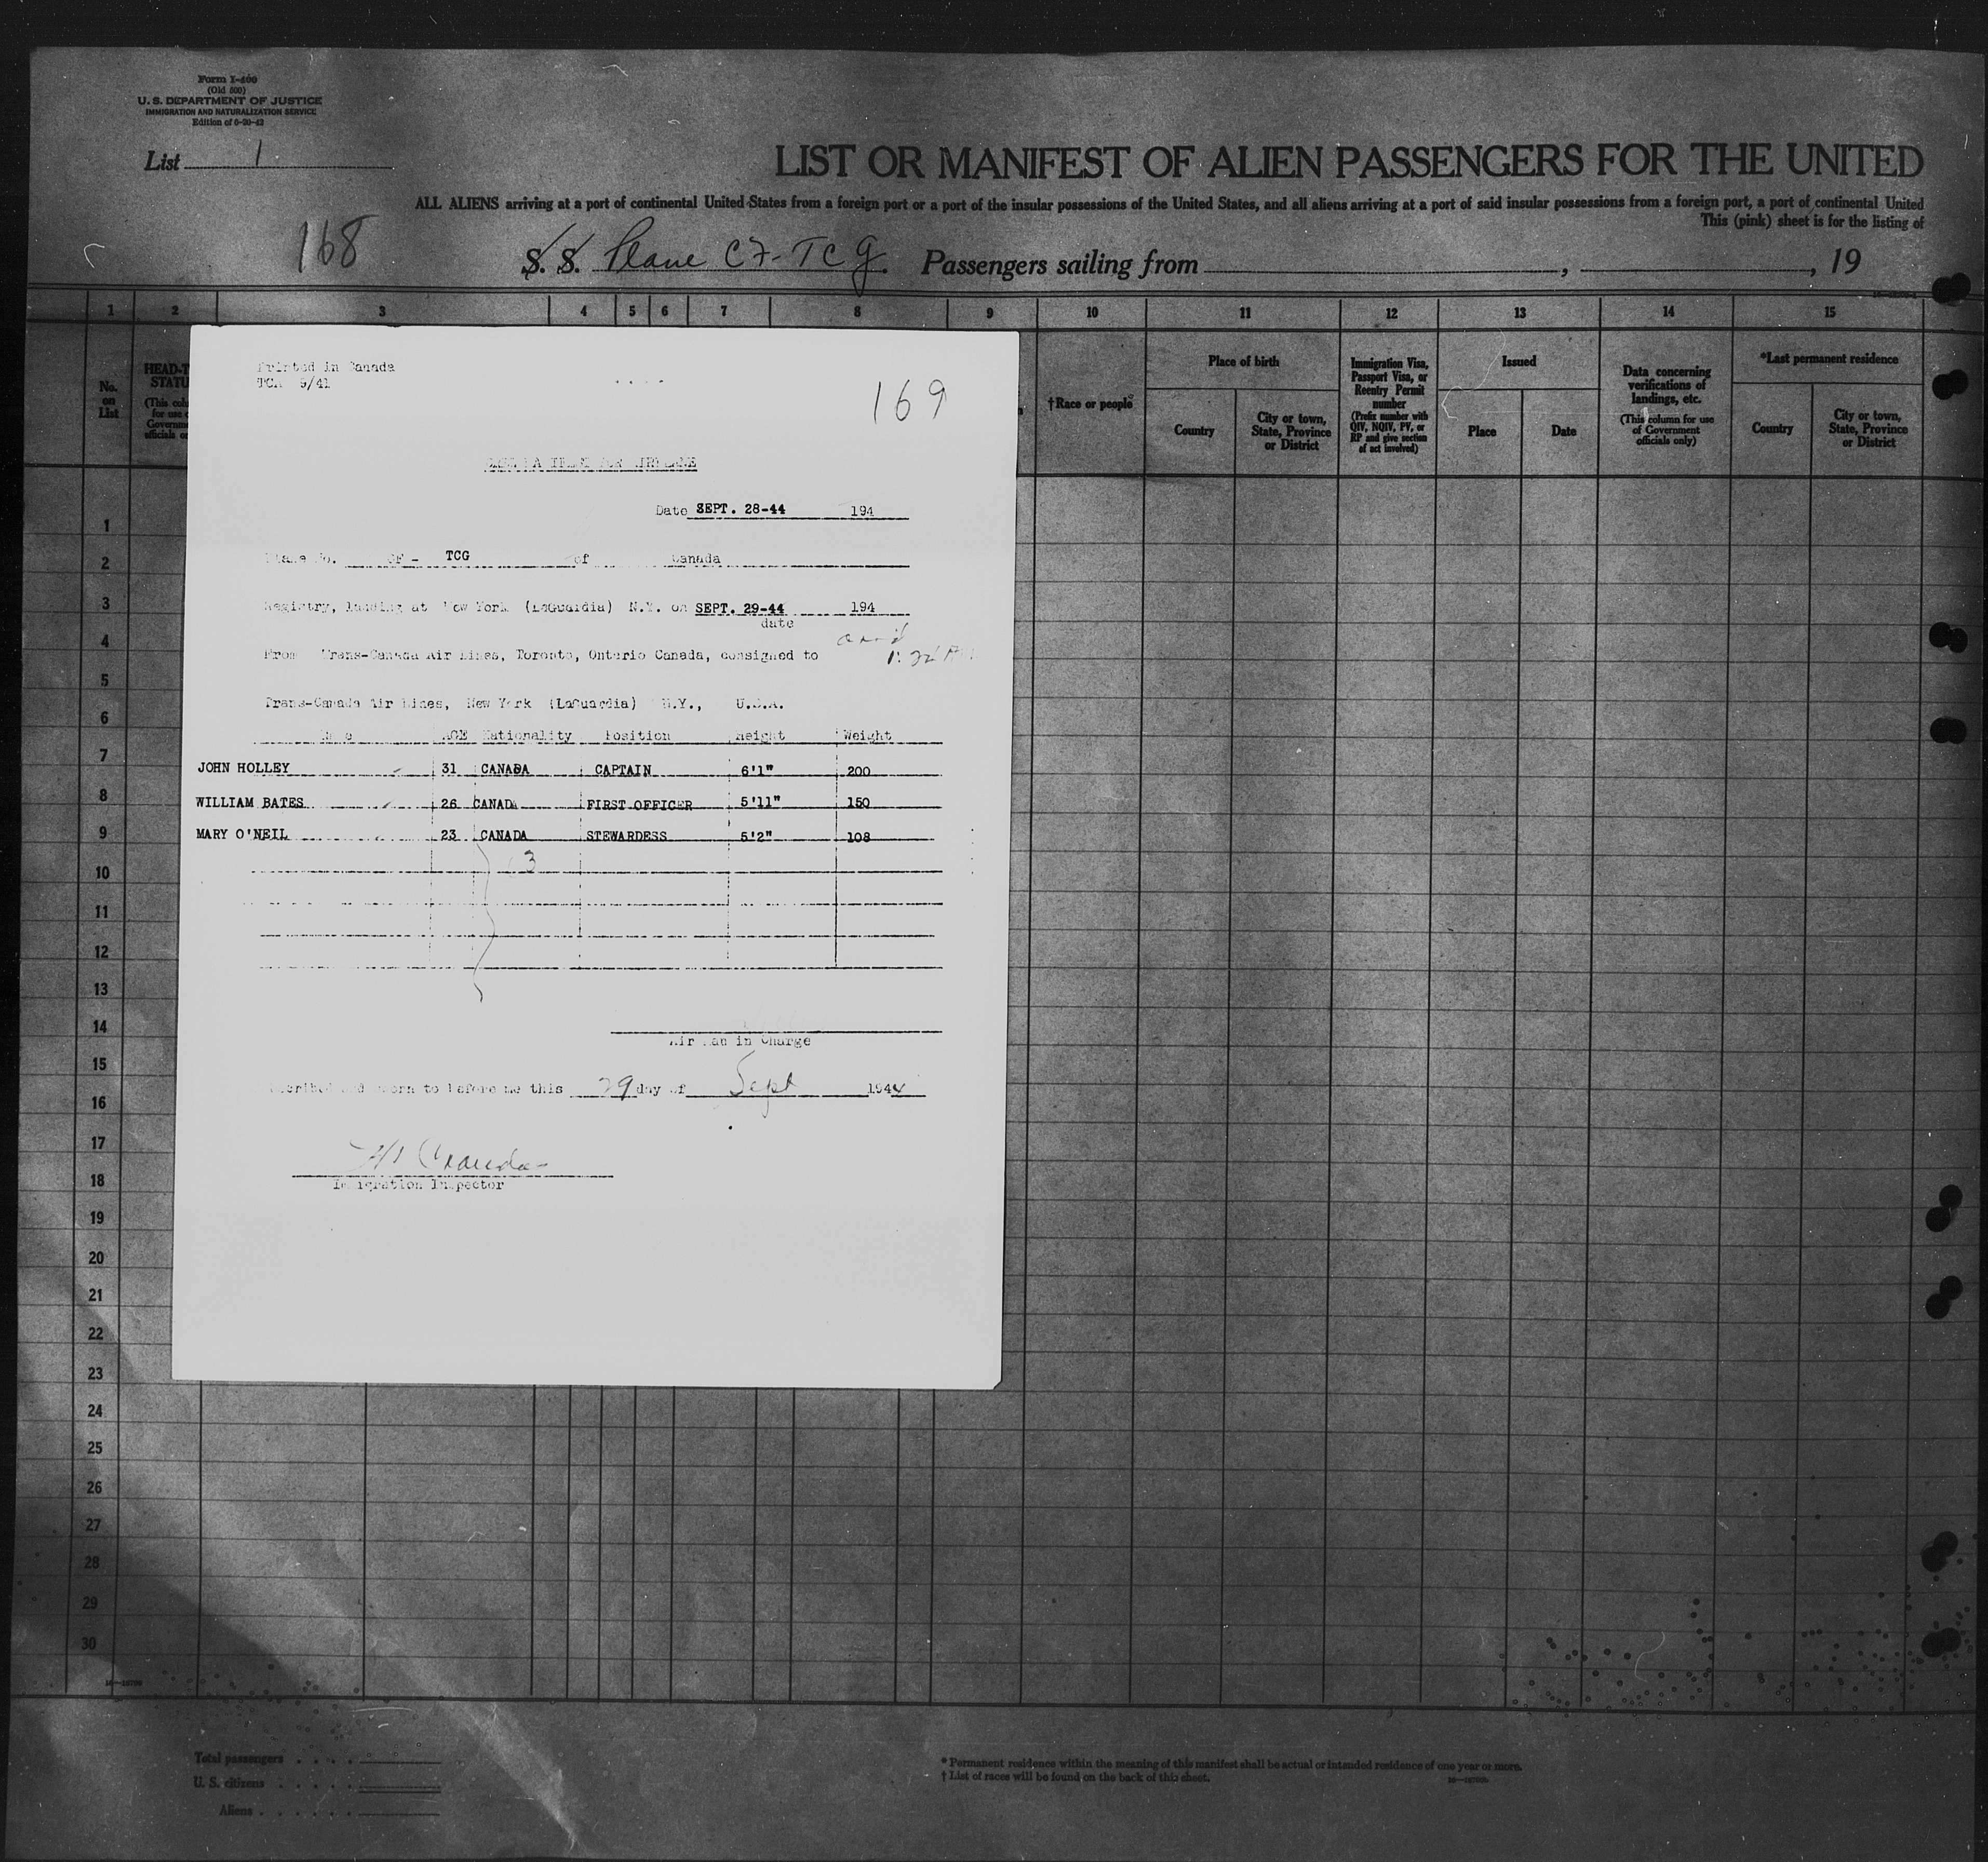 Form I-400
(Old 500)
U. S. DEPARTMENT OF JUSTICE
IMMIGRATION AND NATURALIZATION SERVICE
Edition of 6-20-42
List 1
LIST OR MANIFEST OF ALIEN PASSENGERS FOR THE UNITED
ALL ALIENS arriving at a port of continental United States from a foreign port or a port of the insular possessions of the United States, and all aliens arriving at a port of said insular possessions from a foreign port, a port of continental United
This (pink) sheet is for the listing of
168
S. S. Plane CF-TCG. Passengers sailing from , , 19
1 2 3 4 5 6 7 8 9 10 11 12 13 14 15
No. on List
HEAD-T
STATU
(This colu
for use o
Governme
officials on
†Race or people
Place of birth
Country
City or town, State, Province or District
Immigration Visa, Passport Visa, or Reentry Permit number
(Prefix number with QIV, NQIV, PV, or RP and give section of act involved)
Issued
Place
Date
Data concerning verifications of landings, etc.
(This column for use of Government officials only)
*Last permanent residence
Country
City or town, State, Province or District
Printed in Canada
TCA 9/41
169
Date SEPT. 28-44 194
Plane No. CF - TCG of Canada
Registry, landing at New York (LaGuardia) N.Y. on SEPT. 29-44 194
date
arr'd
From Trans-Canada Air Lines, Toronto, Ontario Canada, consigned to
Trans-Canada Air Lines, New York (LaGuardia) N.Y., U.S.A.
Name AGE Nationality Position Height Weight
JOHN HOLLEY 31 CANADA CAPTAIN 6'1" 200
WILLIAM BATES 26 CANADA FIRST OFFICER 5'11" 150
MARY O'NEIL 23 CANADA STEWARDESS 5'2" 108
3
Air Man in Charge
Subscribed and sworn to before me this 29 day of Sept 1944
Immigration Inspector
1
2
3
4
5
6
7
8
9
10
11
12
13
14
15
16
17
18
19
20
21
22
23
24
25
26
27
28
29
30
Total passengers . . . .
U. S. citizens . . . . .
Aliens . . . . . .
* Permanent residence within the meaning of this manifest shall be actual or intended residence of one year or more.
† List of races will be found on the back of this sheet.